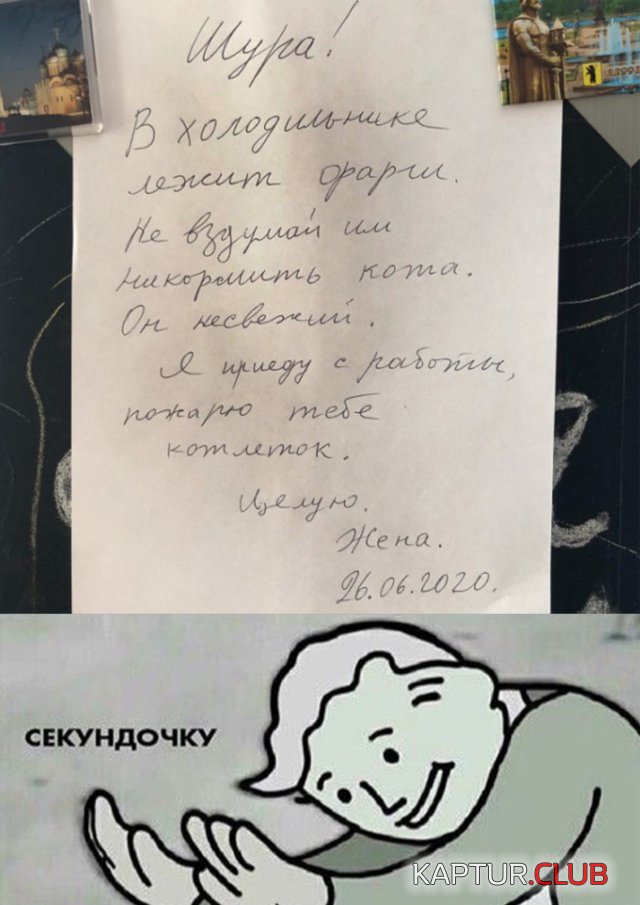 Шура!
В холодильнике
лежит фарш.
Не вздумай им
накормить кота.
Он несвежий.
Я приеду с работы,
пожарю тебе
котлеток.
Целую.
Жена.
26.06.2020.
СЕКУНДОЧКУ
KAPTUR.CLUB